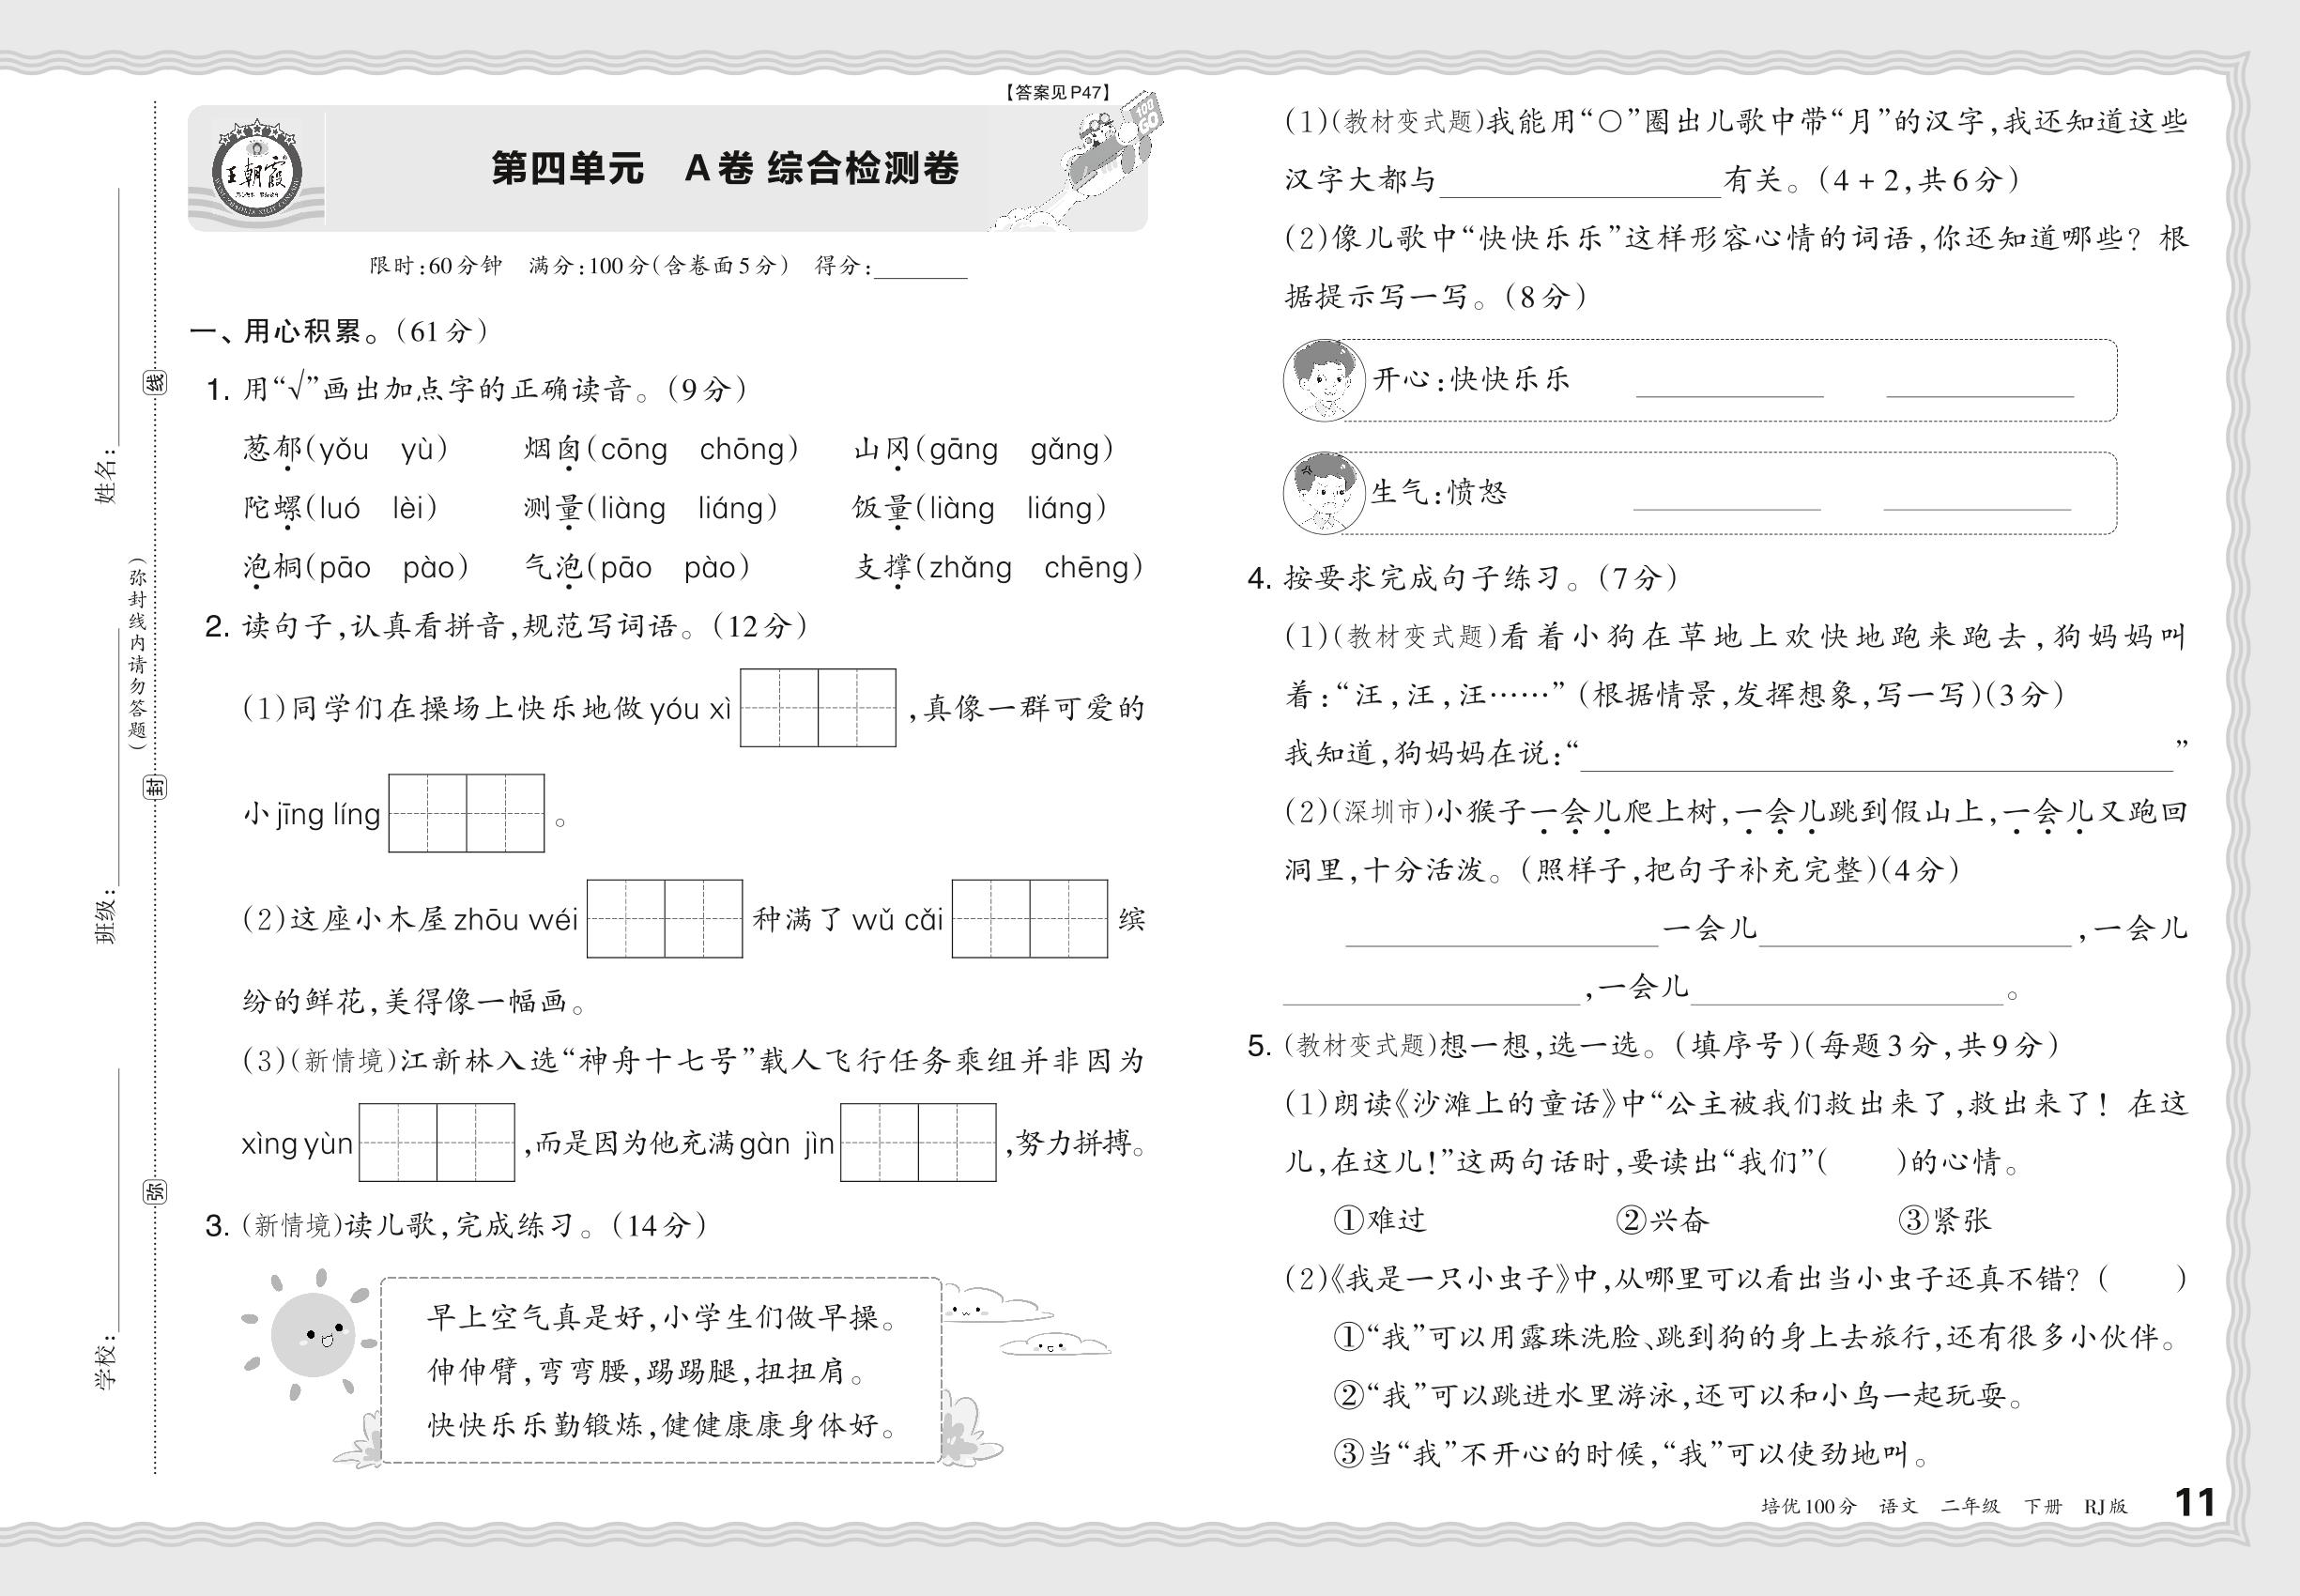 【答案见P47】
王朝霞
第四单元 A卷 综合检测卷
限时:60分钟 满分:100分(含卷面5分) 得分:
一、用心积累。(61分)
1. 用“√”画出加点字的正确读音。(9分)
葱郁(yǒu yù) 烟囱(cōng chōng) 山冈(gāng gǎng)
陀螺(luó lèi) 测量(liàng liáng) 饭量(liàng liáng)
泡桐(pāo pào) 气泡(pāo pào) 支撑(zhǎng chēng)
2. 读句子,认真看拼音,规范写词语。(12分)
(1)同学们在操场上快乐地做yóu xì ,真像一群可爱的
小jīng líng 。
(2)这座小木屋zhōu wéi 种满了wǔ cǎi 缤
纷的鲜花,美得像一幅画。
(3)(新情境)江新林入选“神舟十七号”载人飞行任务乘组并非因为
xìng yùn ,而是因为他充满gàn jìn ,努力拼搏。
3. (新情境)读儿歌,完成练习。(14分)
早上空气真是好,小学生们做早操。
伸伸臂,弯弯腰,踢踢腿,扭扭肩。
快快乐乐勤锻炼,健健康康身体好。
学校:
班级:
姓名:
(弥封线内请勿答题)
弥
封
线
(1)(教材变式题)我能用“○”圈出儿歌中带“月”的汉字,我还知道这些
汉字大都与 有关。(4+2,共6分)
(2)像儿歌中“快快乐乐”这样形容心情的词语,你还知道哪些? 根
据提示写一写。(8分)
开心:快快乐乐
生气:愤怒
4. 按要求完成句子练习。(7分)
(1)(教材变式题)看着小狗在草地上欢快地跑来跑去,狗妈妈叫
着:“汪,汪,汪……”(根据情景,发挥想象,写一写)(3分)
我知道,狗妈妈在说:“ ”
(2)(深圳市)小猴子一会儿爬上树,一会儿跳到假山上,一会儿又跑回
洞里,十分活泼。(照样子,把句子补充完整)(4分)
一会儿 ,一会儿
,一会儿 。
5. (教材变式题)想一想,选一选。(填序号)(每题3分,共9分)
(1)朗读《沙滩上的童话》中“公主被我们救出来了,救出来了! 在这
儿,在这儿!”这两句话时,要读出“我们”( )的心情。
①难过 ②兴奋 ③紧张
(2)《我是一只小虫子》中,从哪里可以看出当小虫子还真不错?( )
①“我”可以用露珠洗脸、跳到狗的身上去旅行,还有很多小伙伴。
②“我”可以跳进水里游泳,还可以和小鸟一起玩耍。
③当“我”不开心的时候,“我”可以使劲地叫。
培优100分 语文 二年级 下册 RJ版 11